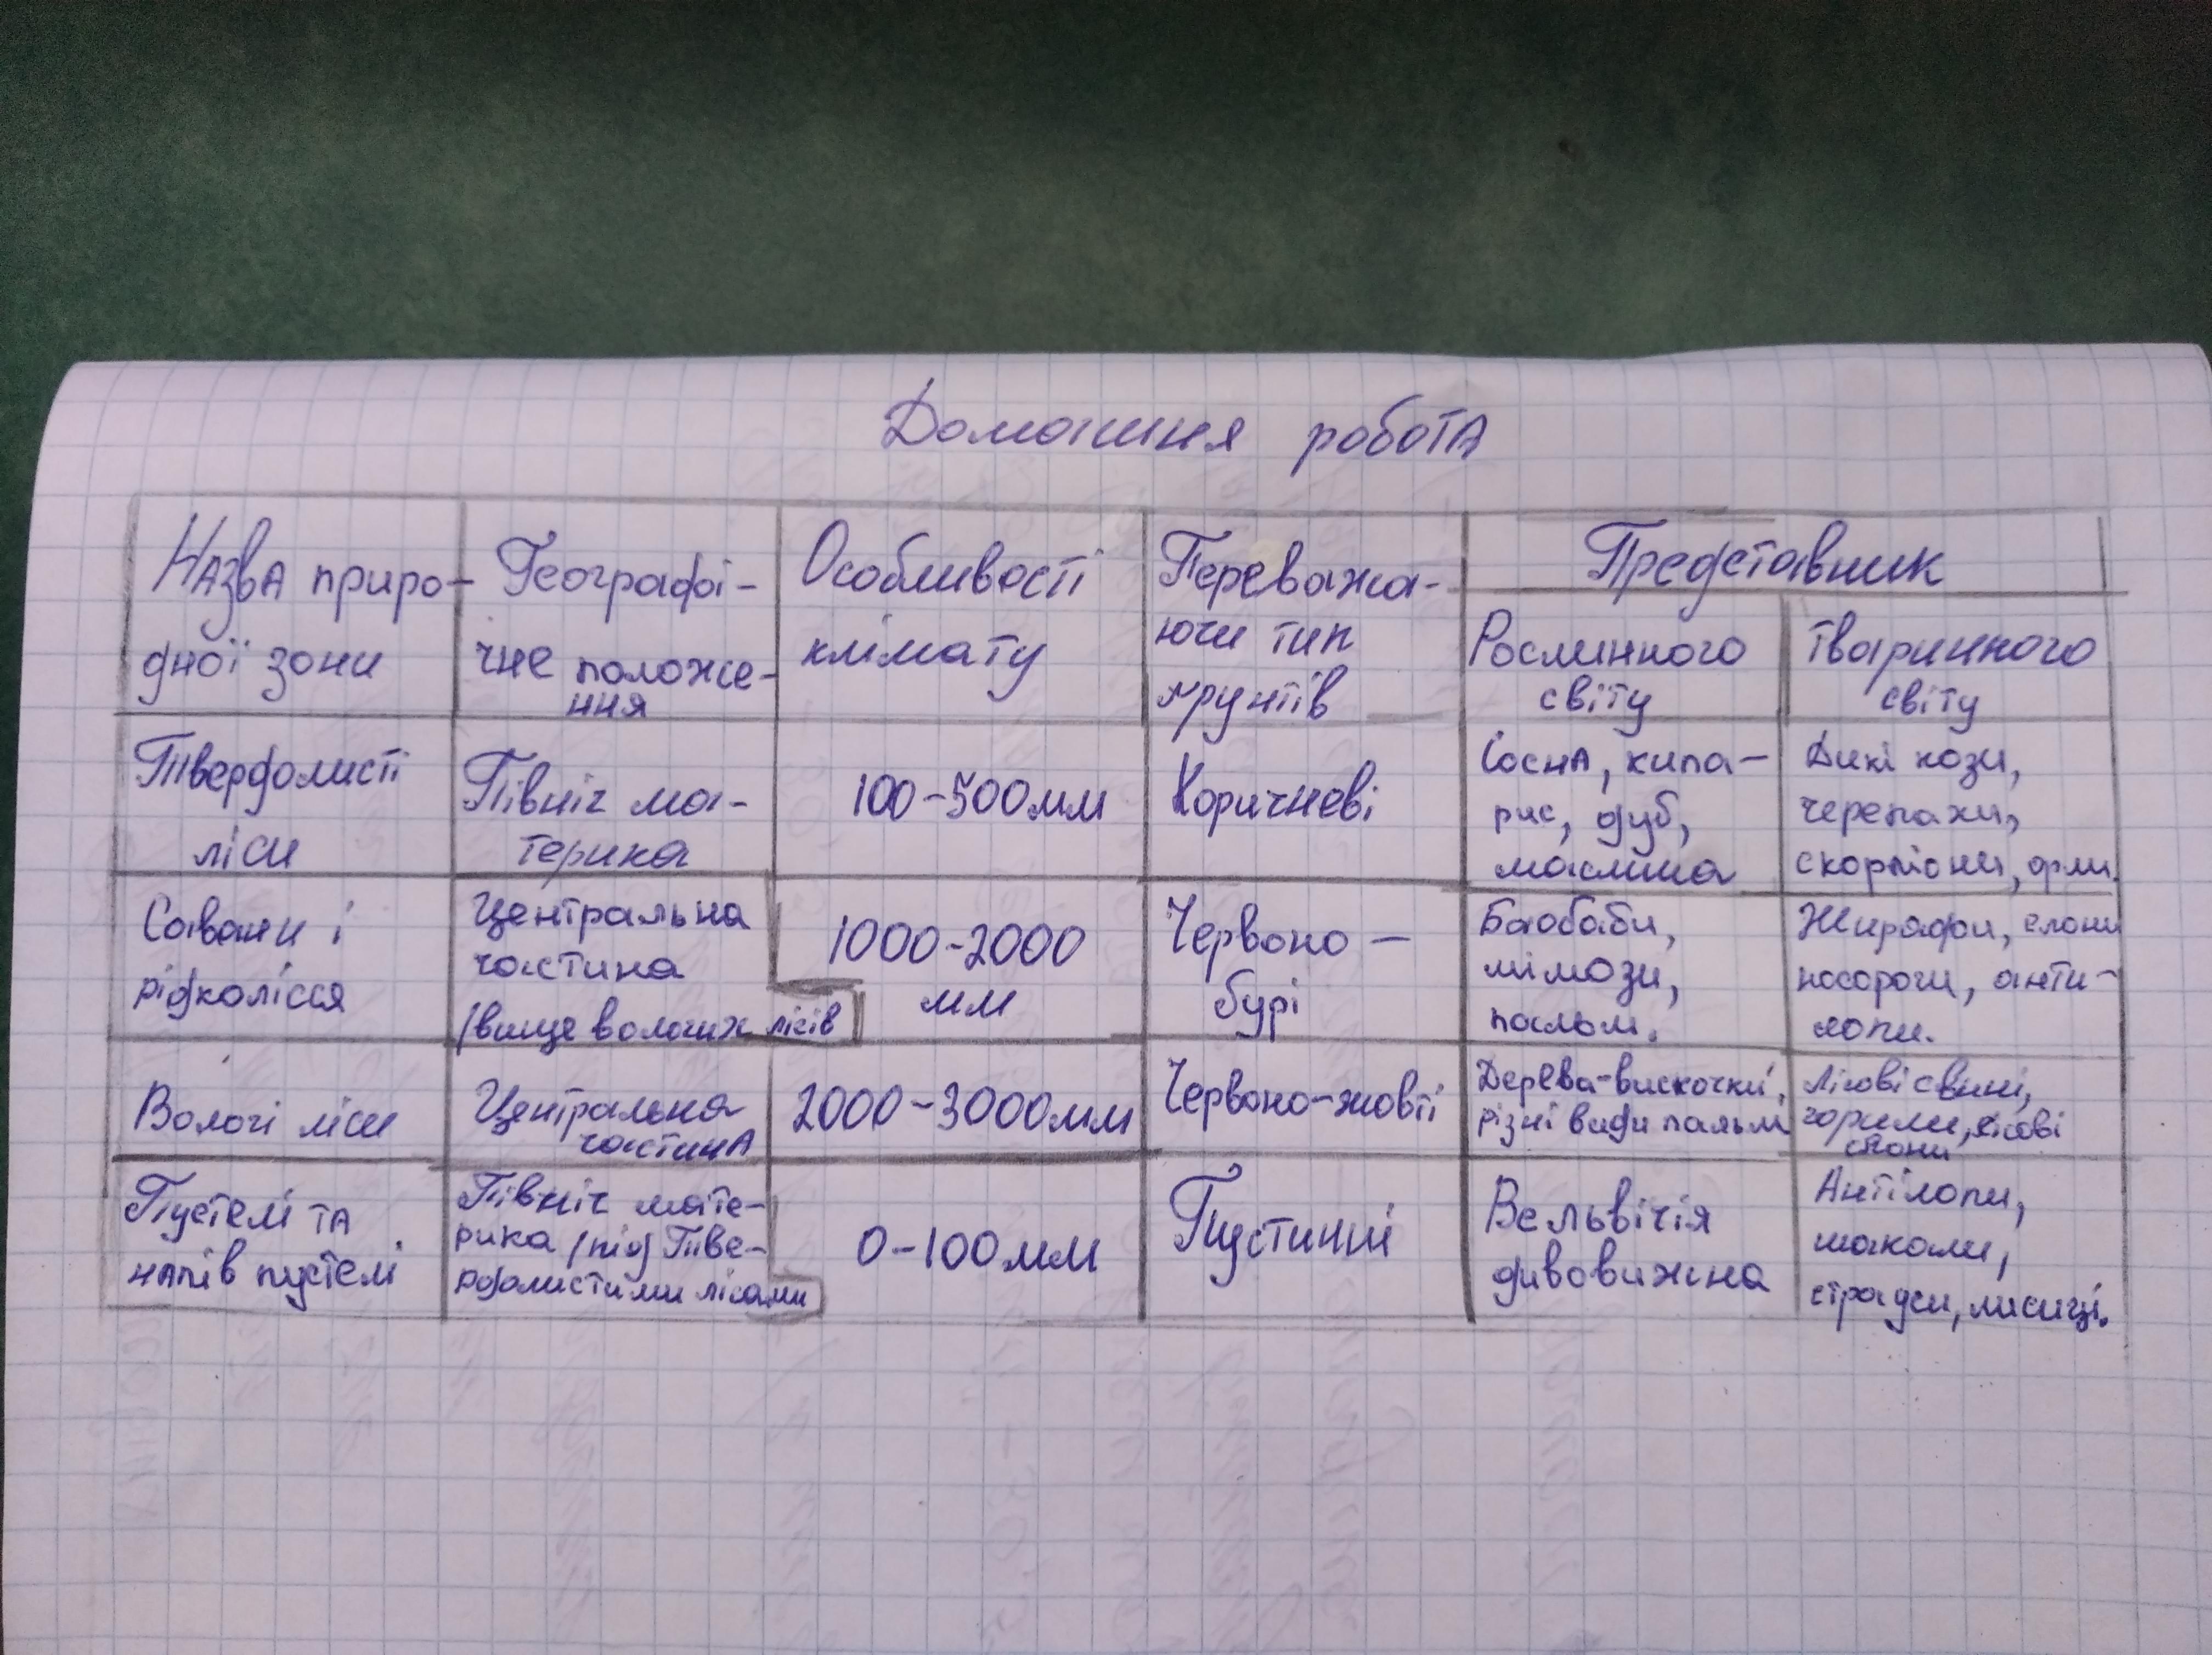 Домашня робота
Назва приро-
дної зони
Географі-
чне положе-
ння
Особливості
клімату
Переважа-
ючи тип
ґрунтів
Представник
Рослинного
світу
Тваринного
світу
Твердолисті
ліси
Північ ма-
терика
100-500мм
Коричневі
Сосна, кипа-
рис, дуб,
маслина
Дикі кози,
черепахи,
скорпіони, орли.
Савани і
рідколісся
Центральна
частина
(вище вологих лісів
1000-2000
мм
Червоно-
бурі
Баобаби,
мімози,
пальми.
Жирафи, слони
носороги, анти-
лопи.
Вологі ліси
Центральна
частина
2000-3000мм
Червоно-жовті
Дерева-вискочки,
різні види пальм
Лісові свині,
горили, лісові
слони
Пустелі та
напів пустелі
Північ мате-
рика (під Тве-
рдолистими лісами
0-100мм
Пустинні
Вельвічія
дивовижна
Антілопи,
шакали,
страуси, лисиці.